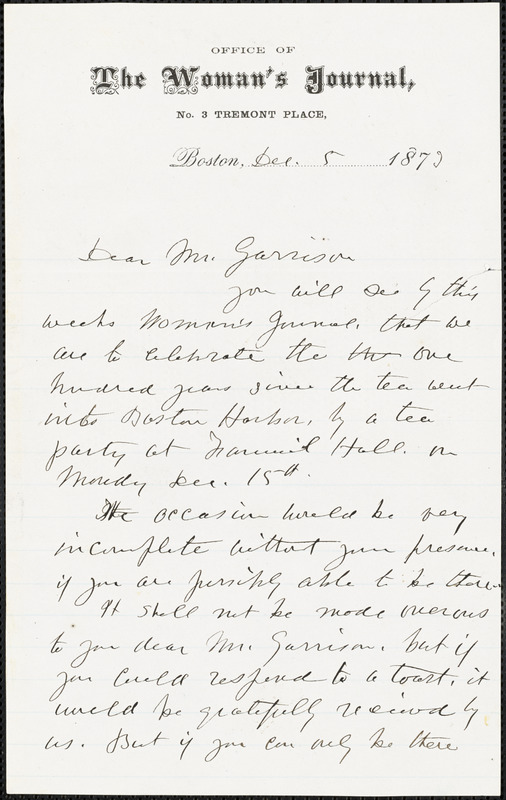 OFFICE OF
The Woman's Journal,
No. 3 TREMONT PLACE,
Boston, Dec. 5 1873
Dear Mr. Garrison
you will see by this
weeks Woman's Journal, that we
are to celebrate the one
hundred years since the tea went
into Boston Harbor, by a tea
party at Faneuil Hall. on
Monday Dec. 15th.
The occasion would be very
incomplete without your presence,
if you are possibly able to be there
It shall not be made onerous
to you dear Mr. Garrison, but if
you could respend to a toast, it
would be gratefully received by
us. But if you can only be there